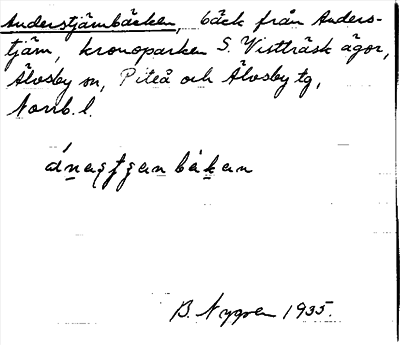 Anderstjärnbäcken, bäck från Anders-
tjärn, kronoparken S. Vistträsk ägor,
Älvsby sn, Piteå och Älvsby tg,
Norrb. l.
B. Nygren 1935.